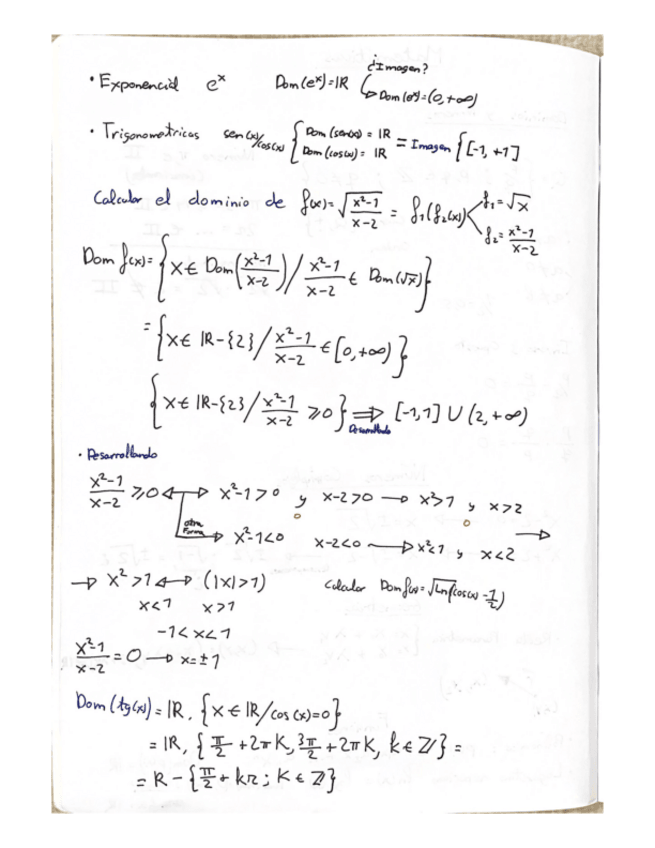 ¿Imagen?
• Exponencial e^x Dom(e^x)=IR → Dom(e^x)=(0,+∞)
• Trigonometricas sen(x)/cos(x) { Dom(sen(x)) = IR Dom(cos(x)) = IR = Imagen {[-1,+1]
Calcular el dominio de f(x)=√((x²-1)/(x-2)) = f₁(f₂(x)) < f₁=√x
f₂=(x²-1)/(x-2)
Dom f(x)= {x∈ Dom((x²-1)/(x-2)) / (x²-1)/(x-2) ∈ Dom(√x)}
= {x∈ IR-{2} / (x²-1)/(x-2) ∈ [0,+∞)}
{x∈ IR-{2} / (x²-1)/(x-2) ≥0} ⇒ [-1,1] U (2,+∞)
Desarrollado
• Desarrollando
(x²-1)/(x-2) ≥0 ↔ x²-1>0 y x-2>0 → x²>1 y x>2
o o
otra forma → x²-1<0 x-2<0 → x²<1 y x<2 →
→ x²>1 ↔ (|x|>1) Calcular Dom f(x)=√(Ln(cos(x)-1/2)
x<1 x>1
-1<x<1
(x²-1)/(x-2) = 0 → x=±1
Dom(tg(x)) = IR, {x∈IR/cos(x)=0}
= IR, {π/2 + 2πK, 3π/2 + 2πK, k∈Z} =
= R - {π/2 + kπ; K∈Z}